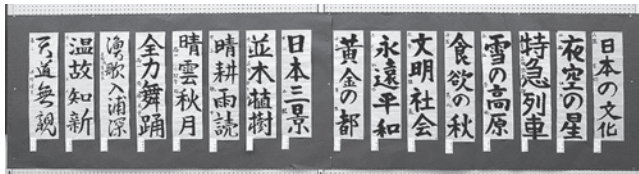 日本の文化
夜空の星
特急列車
雪の高原
食欲の秋
文明社会
永遠平和
黄金の都
日本三景
並木植樹
晴耕雨読
晴雲秋月
全力舞踊
漁歌入浦深
温故知新
天道無親